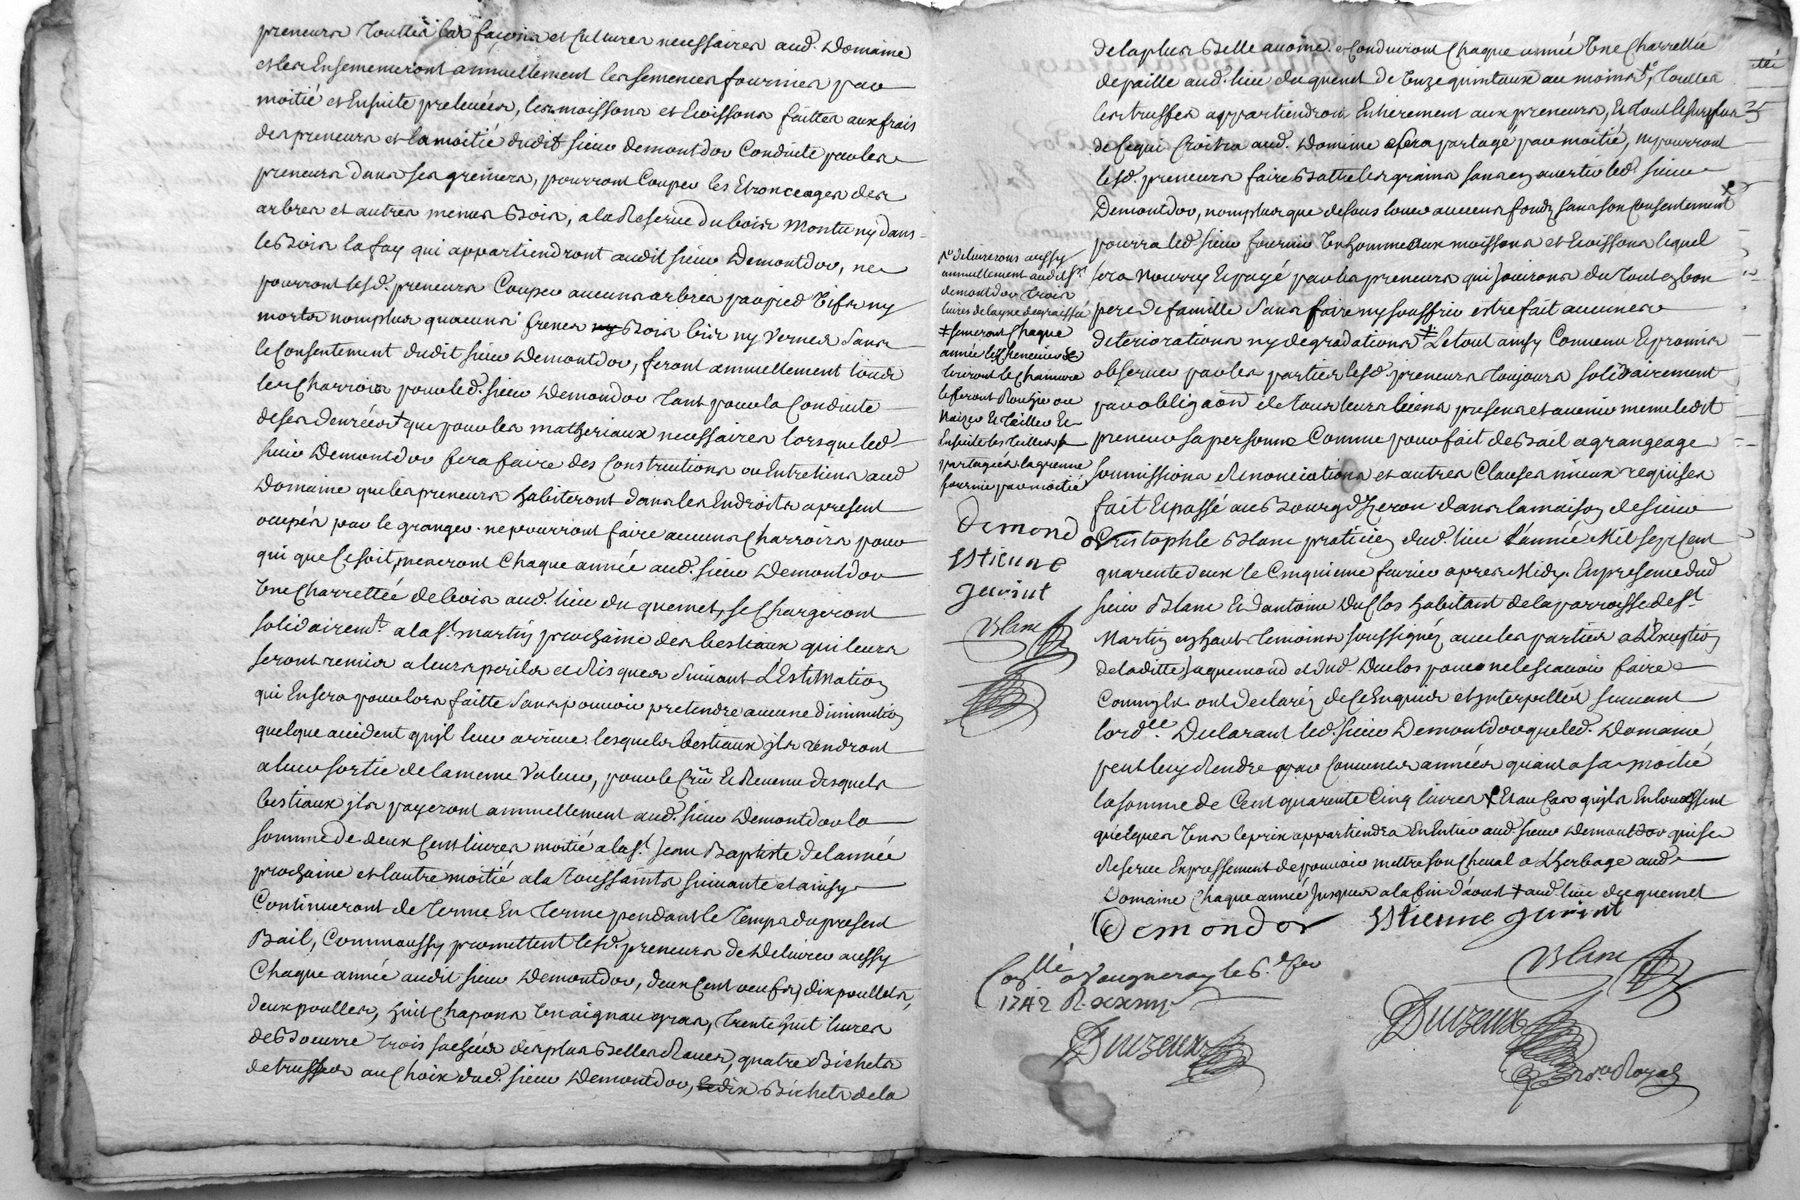 preneurs touttes les façons et cultures necessaires aud. Domaine
et les Ensemenceront annuellement les semences fournies par
moitié et Ensuite prelevées, les moissons et Eivissons faittes aux frais
des preneurs et la moitié dudit sieur demontdor Conduite par les
preneurs dans ses greniers, pourront Couper les Etronceages des
arbres et autres menus Bois, a la Reserve du bois Montu ny dans
le Bois la fay qui appartiendront audit sieur Demontdor, ne
pourront lesd. preneurs Couper aucuns arbres par pied vifs ny
morts nomplus qu'aucuns frenes ny Bois bis ny Vernes Sans
le Consentement dudit sieur Demontdor, feront annuellement tous
les Charrois pour led. sieur Demondor tant pour la Conduite
de ses denrées que pour les matheriaux necessaires lorsque led.
sieur Demontdor fera faire des Constructions ou Entretiens aud
Domaine que les preneurs habiteront dans les Endroits apresent
ocupés par le granger. ne pourront faire aucuns Charrois pour
qui que Ce soit, meneront Chaque année aud. sieur Demontdor
Une Charrettée de bois aud. lieu du quemet, se Chargeront
solidairemt. a la St. martin prochaine des bestiaux qui leurs
seront remis a leurs perils et Risques Suivant L'Estimation
qui En sera pour lors faitte Sans pouvoir pretendre aucune diminution
quelque accident qu'il leur arrive lesquels bestiaux ils rendront
a leur sortie de la meme Valeur, pour le Crû et Revenu desquels
bestiaux ils payeront annuellement aud. sieur Demontdor la
somme de deux Cent livres moitié a la St. Jean Baptiste de l'année
prochaine et l'autre moitié a la Toussaints suivante et ainsy
Continueront de Terme En Terme pendant le Temps du present
Bail, Comm'aussy promettent lesd. preneurs de Delivrer aussy
Chaque année audit sieur Demontdor, deux Cent oeufs, dix poullets,
deux poulles, huit Chapons Un aignau gras, trente huit livres
de Beurre trois sachées des plus Belles Raves, quatre Bichets
de truffes au Choix dud. sieur Demontdor, dix Bichets de la
de la plus Belle avoine, & Conduiront Chaque année Une Charrettée
de paille aud. lieu du quemet de Unze quintaux au moins, touttes
les truffes appartiendront Entierement aux preneurs, Et tout le surplus
de Ce qui Croitra aud. Domaine sera partagé par moitié, ny pourront
lesd. preneurs faire Battre les grains sans en avertir led. sieur
Demontdor, nomplus que de sous louer aucuns fonds sans son Consentement
pourra led. sieur fournir Un homme aux moissons et Eivissons lequel
sera Nourry Et payé par les preneurs qui Jouirons du tout En bon
pere de famille Sans faire ny souffrir estre fait aucunes
deteriorations ny degradations Le tout ainsy Convenu Et promis
observer par les parties lesd. preneurs toujours solidairement
par obligaõn de tous leurs biens presens et avenir meme ledit
preneur sa personne Comme pour fait de Bail a grangeage
soumissions Renonciations et autres Clauses mieux requises
fait Et passé au Bourg d'Izeron dans la maison de sieur
Cristophle Blanc praticien dud. lieu L'année Mil sept Cent
quarente deux le Cinquieme fevrier apres Midy. En presence dud
sieur Blanc Et d'antoine Duclos habitant de la parroisse de St.
Martin en haut temoins soussignéz avec les parties a L'Exception
de laditte Jaquemond et dud. Duclos pour ne le scavoir faire
Comm'ils ont declaréz de Ce Enquis et Interpellés suivant
l'ord.ce Declarant led. sieur Demontdor que led. Domaine
peut luy Rendre par Communes années quant a sa moitié
la somme de Cent quarente Cinq livres Et au Cas qu'ils En louassent
quelques Uns le prix appartiendra En Entier aud. sieur Demontdor qui se
Reserve Expressement de pouvoir mettre son Cheval a L'herbage aud.
Domaine Chaque année Jusques a la fin d'aoust aud. lieu de quemet
delivrerons aussy
annuellement audit Sr.
demontdor trois
livres de layne degraissée
semeront Chaque
année les Chenevier
tireront le Chanvre
le feront
Naizer Et teiller Et
Ensuite
partagées la grenne
fournie par moitié
Demondor
Estienne
Jurint
Blanc
Demondor Estienne Jurint
Blanc
Con.llé a Vaugneray le 6. fev
1742 R.
Duvzeux
Duvzeux
no.re Royal